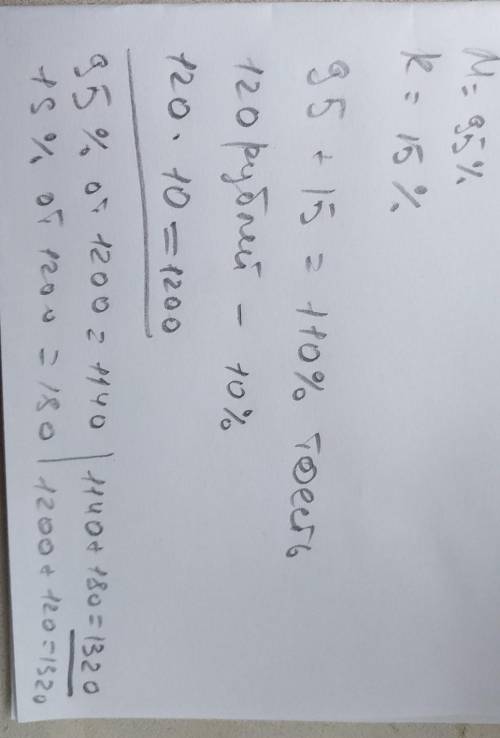 М = 95%
к = 15%
95 + 15 = 110% тоесть
120 рублей - 10%
120 . 10 = 1200
95% от 1200 = 1140 | 1140 + 180 = 1320
15% от 1200 = 180 | 1200 + 120 = 1320